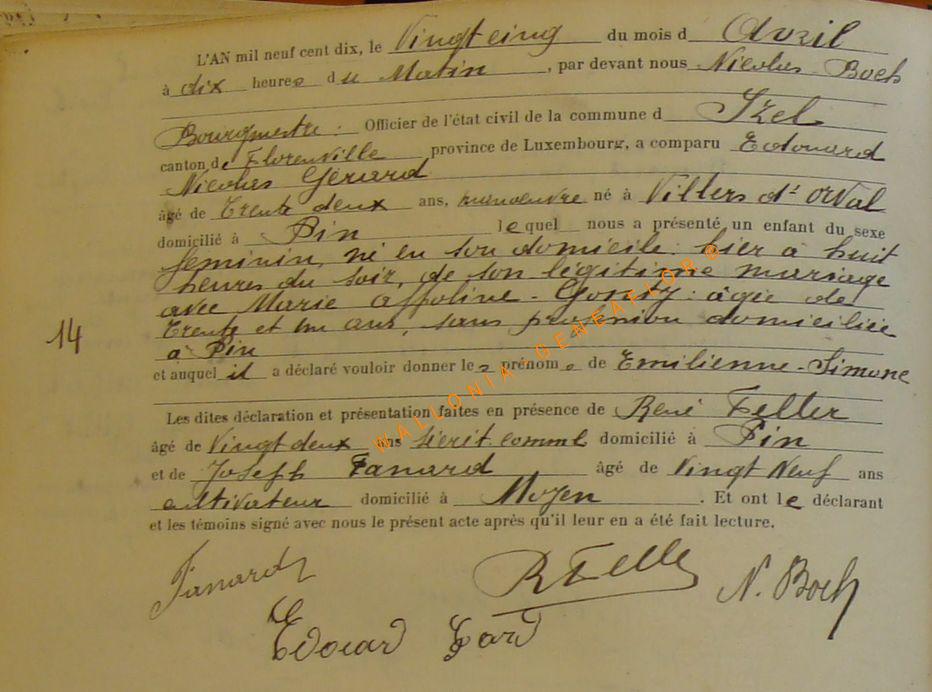 L'AN mil neuf cent dix, le Vingt cinq du mois d Avril
à dix heures du Matin, par devant nous Nicolas Boch
Bourgmestre. Officier de l'état civil de la commune d Izel
canton de Florenville province de Luxembourg, a comparu Edouard
Nicolas Gérard
âgé de Trente deux ans, manoeuvre né à Villers dt orval
domicilié à Pin lequel nous a présenté un enfant du sexe
feminin, né en son domicile hier à huit
heures du soir, de son légitime mariage
avec Marie Appoline - âgée de
Trente et un ans, sans profession domiciliée
à Pin
14
et auquel il a déclaré vouloir donner les prénoms de Emilienne - Simone
Les dites déclaration et présentation faites en présence de René Feller
âgé de Vingt deux ans comml domicilié à Pin
et de Joseph Fanard âgé de Vingt Neuf ans
cultivateur domicilié à Moyen. Et ont le déclarant
et les témoins signé avec nous le présent acte après qu'il leur en a été fait lecture.
Fanard R Felle N. Boch
Edouard
WALLONIA-GENEAFLORE